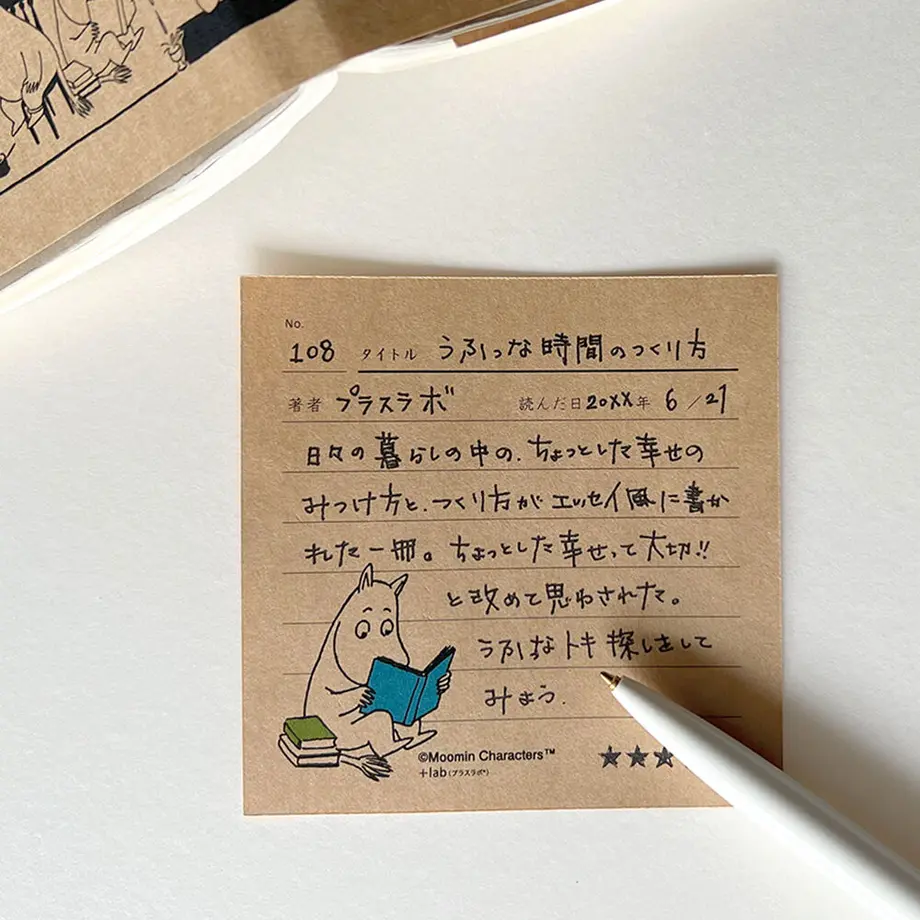 No.
108 タイトル うふっな時間のつくり方
著者 プラスラボ 読んだ日20XX年 6/21
日々の暮らしの中の、ちょっとした幸せの
みつけ方と、つくり方がエッセイ風に書か
れた一冊。ちょっとした幸せって大切!!
と改めて思わされた。
うふっなトキ探しをして
みよう.
©Moomin Characters™
+lab(プラスラボ®)
★★★